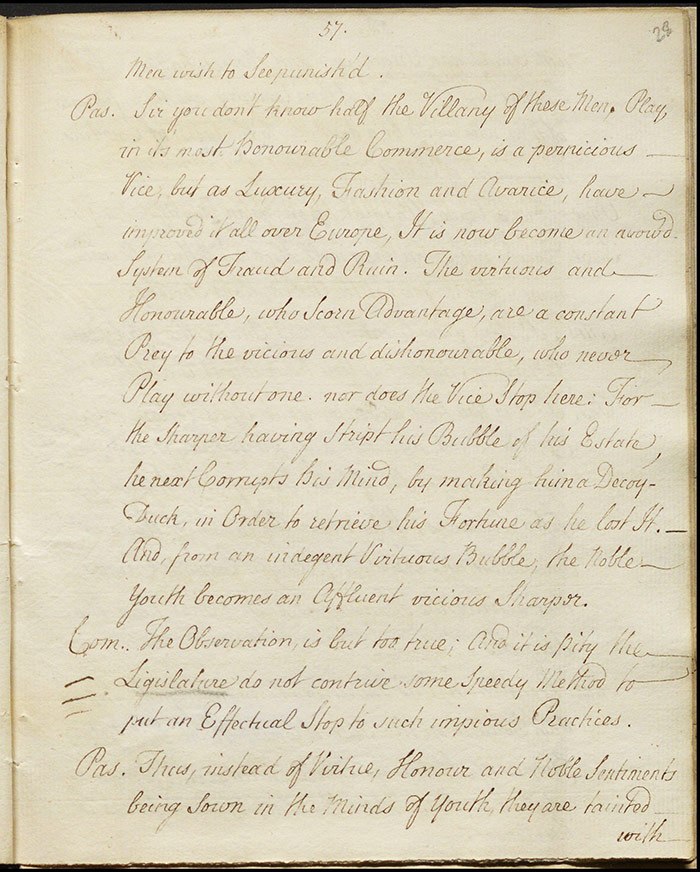 57.
28
Men wish to See punish'd.
Pas. Sir you don't know half the Villany of these Men. Play,
in its most honourable Commerce, is a pernicious
Vice, but as Luxury, Fashion and Avarice, have
improved it all over Europe, It is now become an avow'd
System of Fraud and Ruin. The virtuous and
Honourable, who Scorn Advantage, are a constant
Prey to the vicious and dishonourable, who never
Play without one. nor does the Vice Stop here: For
the Sharper having Stript his Bubble of his Estate,
he next Corrupts his Mind, by making him a Decoy-
Duck, in Order to retrieve his Fortune as he lost It.
And, from an indegent Virtuous Bubble, the Noble
Youth becomes an Affluent vicious Sharper.
Com. The Observation, is but too true; And it is pity the
Ligislature do not contrive some Speedy Method to
put an Effectual Stop to such impious Practices.
Pas. Thus, instead of Virtue, Honour and Noble Sentiments
being Sown in the Minds of Youth, they are tainted
with